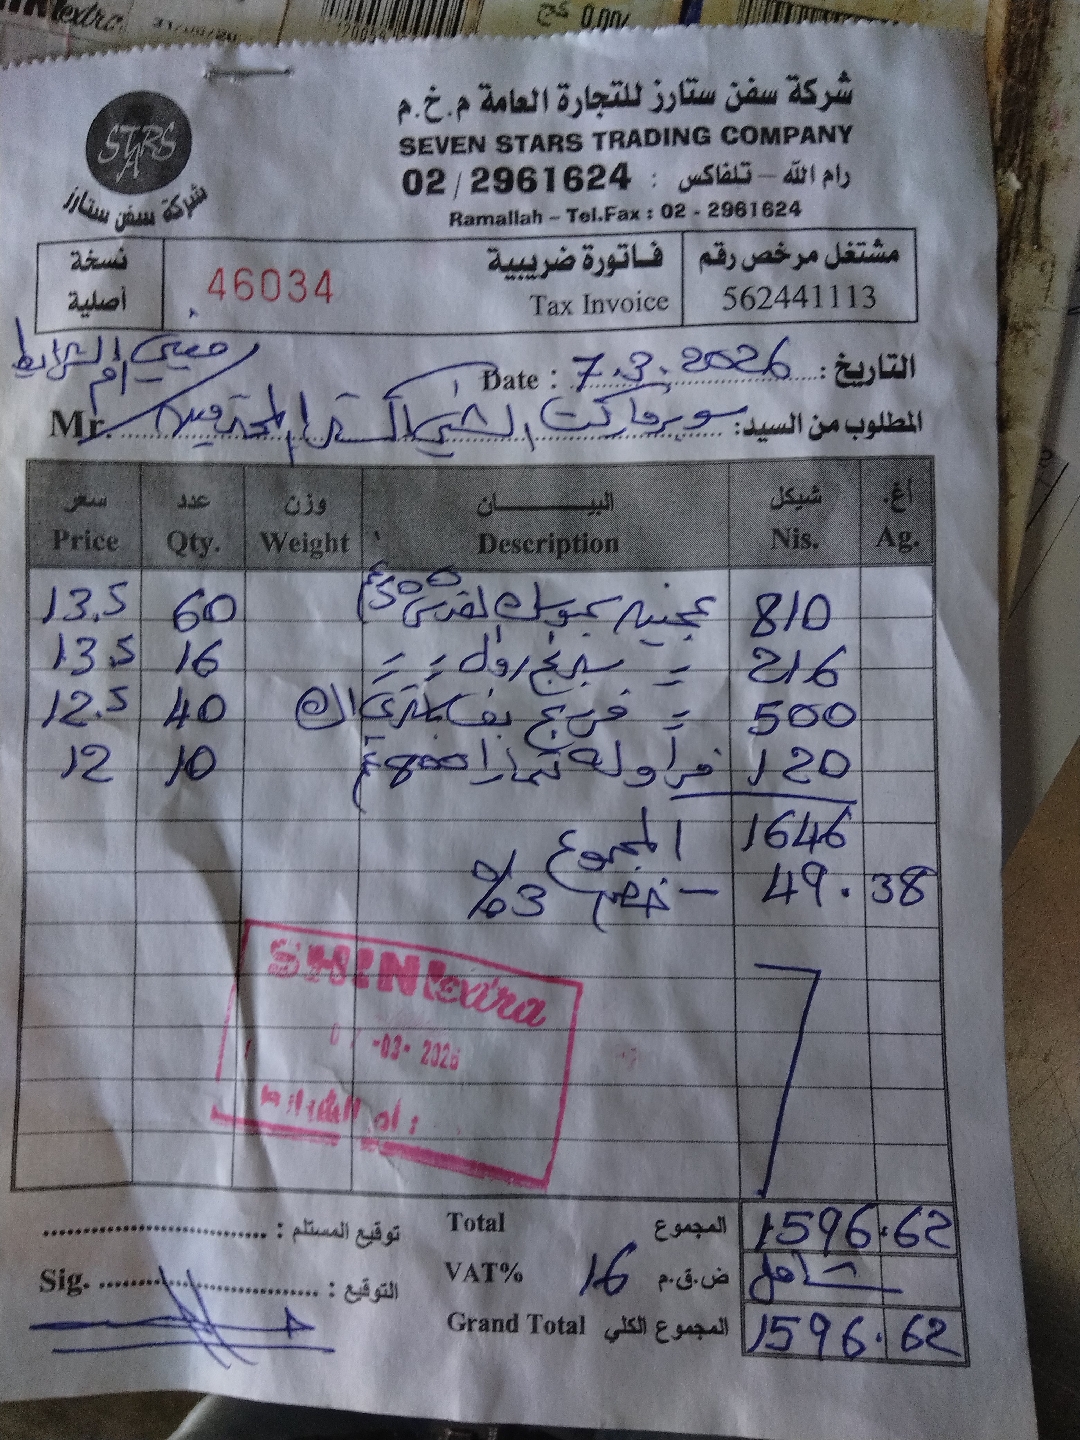 extra
0.00/
شركة سفن ستارز للتجارة العامة م.خ.م
SEVEN STARS TRADING COMPANY
رام الله - تلفاكس : 02/2961624
Ramallah - Tel.Fax : 02 - 2961624
STARS
شركة سفن ستارز
مشتغل مرخص رقم
562441113
فاتورة ضريبية
Tax Invoice
46034
نسخة أصلية
التاريخ : 7.3.2026 Date :
المطلوب من السيد: سوبرماركت الشني اكسترا المحترمين Mr.
ام الشرايط
سعر عدد وزن البيـــان شيكل أغ.
Price Qty. Weight Description Nis. Ag.
13.5 60 500 810
13.5 16 = = = 216
12.5 40 = 500
12 10 فراولة 800 120
المجموع 1646
- خصم 3% 49.38
SHINI extra
-03- 2026
ام الشرايط
توقيع المستلم : Total المجموع 1596.62
Sig. التوقيع : VAT% 16 ض.ق.م شامل
Grand Total المجموع الكلي 1596.62